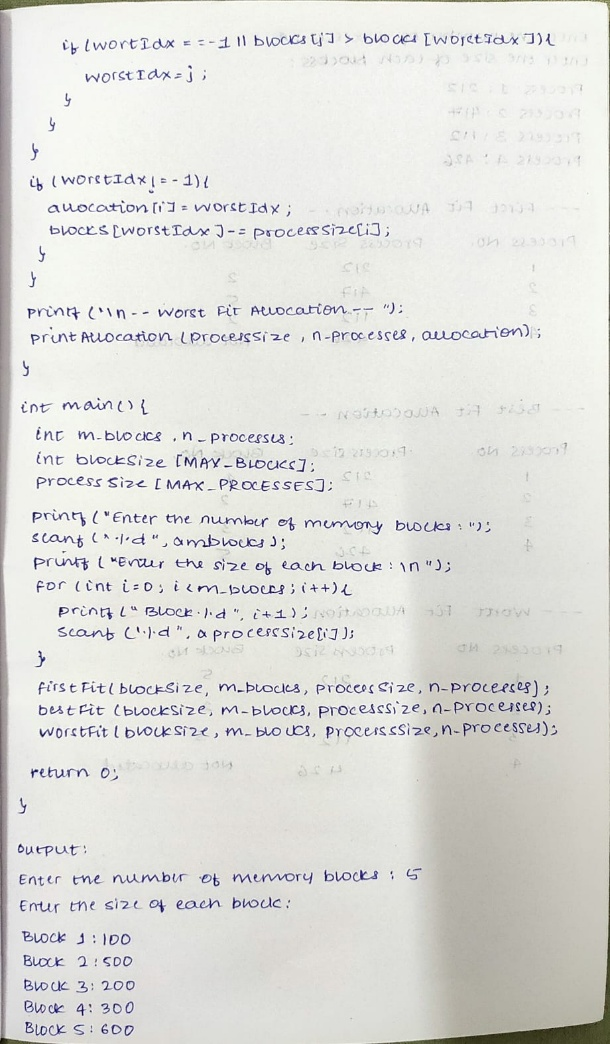 if (wortIdx = = -1 || blocks[j] > blocks [worstIdx]){
worstIdx = j ;
}
}
}
if (worstIdx != -1){
allocation[i] = worstIdx ;
blocks [worstIdx ] -= processSize[i];
}
}
printf ("\n -- Worst Fit Allocation -- ");
printAllocation (processSize , n-processes, allocation);
}
int main() {
int m-blocks , n_processes;
int blockSize [MAX_BLOCKS];
process Size [MAX_PROCESSES];
printf ("Enter the number of memory blocks : ");
scanf ("%d", &mblocks );
printf ("Enter the size of each block : \n ");
for (int i=0; i<m_blocks; i++){
printf (" Block %d ", i+1);
scanf ("%d", & processSize[i]);
}
firstFit( blockSize, m-blocks, processSize, n-processes);
bestFit (blockSize, m-blocks, processsize, n-processes);
WorstFit ( blockSize , m-blocks, processsSize, n-processes);
return 0;
}
Output :
Enter the number of memory blocks : 5
Enter the size of each block :
Block 1 : 100
Block 2 : 500
Block 3 : 200
Block 4 : 300
Block 5 : 600